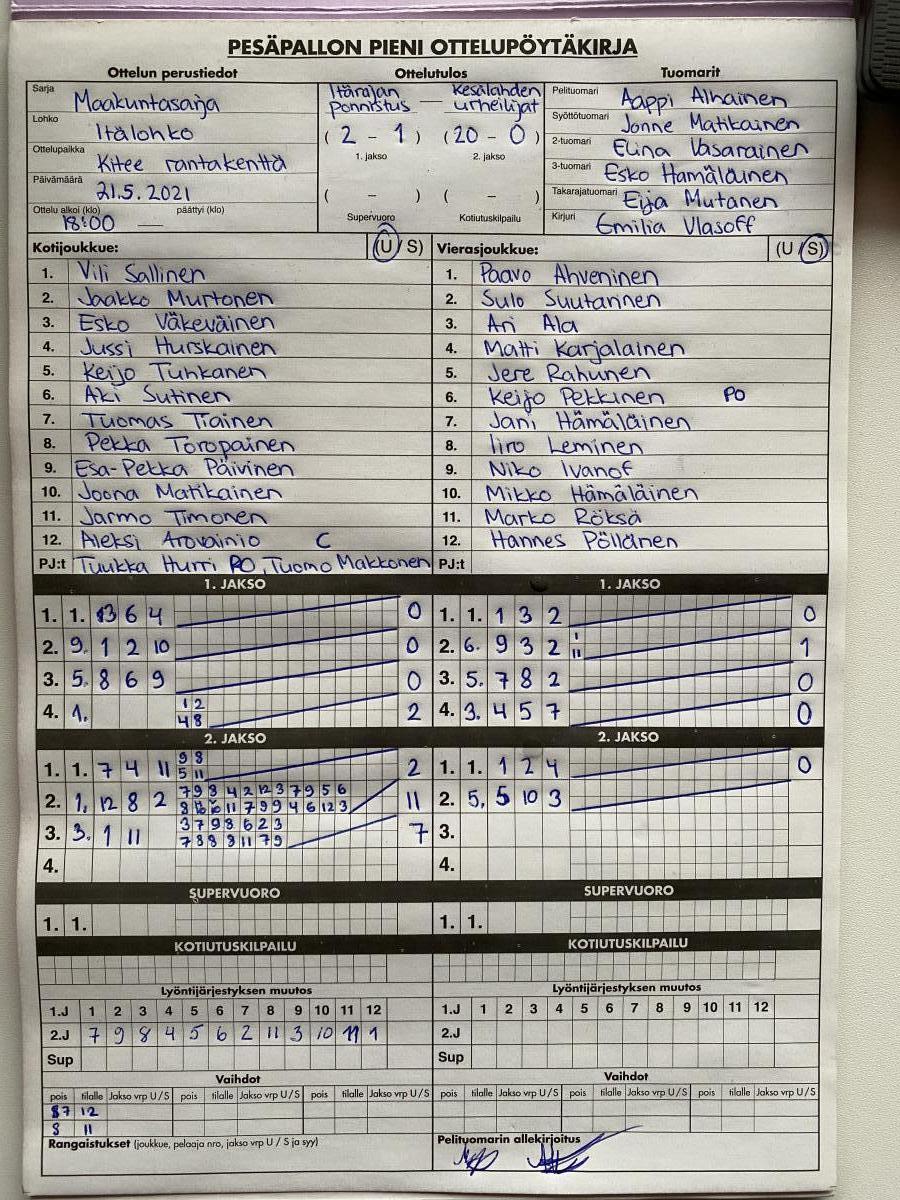 PESÄPALLON PIENI OTTELUPÖYTÄKIRJA
Ottelun perustiedot
Sarja Maakuntasarja
Lohko Itälohko
Ottelupaikka Kitee rantakenttä
Päivämäärä 21.5.2021
Ottelu alkoi (klo) 18:00 päättyi (klo) —
Ottelutulos
Itärajan Ponnistus — Kesälahden urheilijat
( 2 - 1 ) (20 - 0 )
1. jakso 2. jakso
( - ) ( - )
Supervuoro Kotiutuskilpailu
Tuomarit
Pelituomari Aappi Alhainen
Syöttötuomari Jonne Matikainen
2-tuomari Elina Vasarainen
3-tuomari Esko Hämäläinen
Takarajatuomari Eija Mutanen
Kirjuri Emilia Vlasoff
Kotijoukkue: (U / S)
1. Vili Sallinen
2. Jaakko Murtonen
3. Esko Väkeväinen
4. Jussi Hurskainen
5. Keijo Tuhkanen
6. Aki Sutinen
7. Tuomas Tiainen
8. Pekka Toropainen
9. Esa-Pekka Päivinen
10. Joona Matikainen
11. Jarmo Timonen
12. Aleksi Arovainio C
PJ:t Tuukka Hurri PO, Tuomo Makkonen
Vierasjoukkue: (U / S)
1. Paavo Ahveninen
2. Sulo Suutarinen
3. Ari Ala
4. Matti Karjalainen
5. Jere Rahunen
6. Keijo Pekkinen PO
7. Jani Hämäläinen
8. Iiro Leminen
9. Niko Ivanof
10. Mikko Hämäläinen
11. Marko Röksä
12. Hannes Pöllänen
PJ:t
1. JAKSO
1. 1. 3 6 4 0
2. 9. 1 2 10 0
3. 5. 8 6 9 0
4. 1. 1 2 2
4 8
2. JAKSO
1. 1. 7 4 11 9 8 2
5 11
2. 1. 12 8 2 7 9 8 4 2 12 3 7 9 5 6 11
11 7 9 9 4 6 12 3
3. 3. 1 11 3 7 9 8 6 2 3 7
7 8 8 8 11 7 9
4.
SUPERVUORO
1. 1.
KOTIUTUSKILPAILU
Lyöntijärjestyksen muutos
1.J 1 2 3 4 5 6 7 8 9 10 11 12
2.J 7 9 8 4 5 6 2 11 3 10 11 1
Sup
Vaihdot
pois tilalle Jakso vrp U / S pois tilalle Jakso vrp U / S pois tilalle Jakso vrp U / S
7 12
8 11
Rangaistukset (joukkue, pelaaja nro, jakso vrp U / S ja syy)
1. JAKSO
1. 1. 1 3 2 0
2. 6. 9 3 2 1 1
11
3. 5. 7 8 2 0
4. 3. 4 5 7 0
2. JAKSO
1. 1. 1 2 4 0
2. 5. 5 10 3
3.
4.
SUPERVUORO
1. 1.
KOTIUTUSKILPAILU
Lyöntijärjestyksen muutos
1.J 1 2 3 4 5 6 7 8 9 10 11 12
2.J
Sup
Vaihdot
pois tilalle Jakso vrp U / S pois tilalle Jakso vrp U / S pois tilalle Jakso vrp U / S
Pelituomarin allekirjoitus